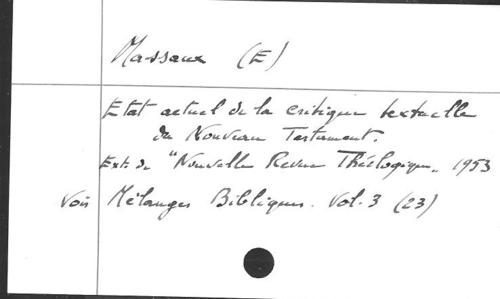 Massaux (E)
Etat actuel de la critique textuelle
du Nouveau Testament.
Ext. de "Nouvelle Revue Théologique" 1953
Voir Mélanges Bibliques. Vol. 3 (23)